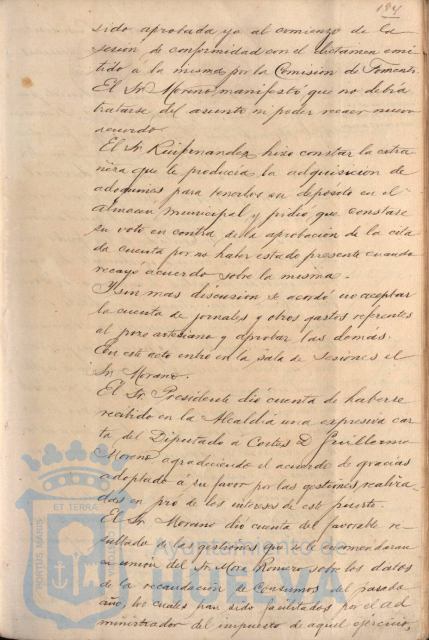 184
sido aprobada ya al comienzo de la
sesión de conformidad con el dictamen emi-
tido á la misma por la Comisión de Fomento.
El Sr. Moreno, manifestó que no debía
tratarse del asunto ni poder recaer nuevo
acuerdo.
El Sr. Ruifernandez hizo constar la extra-
ñeza que le producia la adquisicion de
adoquines para tenerlos en depósito en el
almacen municipal y pidió que constase
su voto en contra de la aprobación de la cita
da cuenta por no haber estado presente cuando
recayó acuerdo sobre la misma.
Y sin mas discusion se acordó no aceptar
la cuenta de jornales y otros gastos referentes
al pozo artesiano y aprobar las demás.
Con este acto entró en la sala de Sesiones el
Sr. Morano.
El Sr. Presidente dió cuenta de haberse
recibido en la Alcaldia una expresiva car-
ta del Diputado á Cortes D. Guillermo
Moreno agradeciendo el acuerdo de gracias
adoptado á su favor por las gestiones realiza-
das en pró de los intereses de este puerto.
El Sr. Morano dió cuenta del favorable re-
sultado de las gestiones que se le encomendaran
en union del Sr. Mora Romero sobre los datos
de la recaudacion de Consumos del pasado
año, los cuales han sido facilitados por el ad
ministrador del impuesto de aquel ejercicio,
PORTUS MARIS
ET TERRAE
Ayuntamiento de
HUELVA